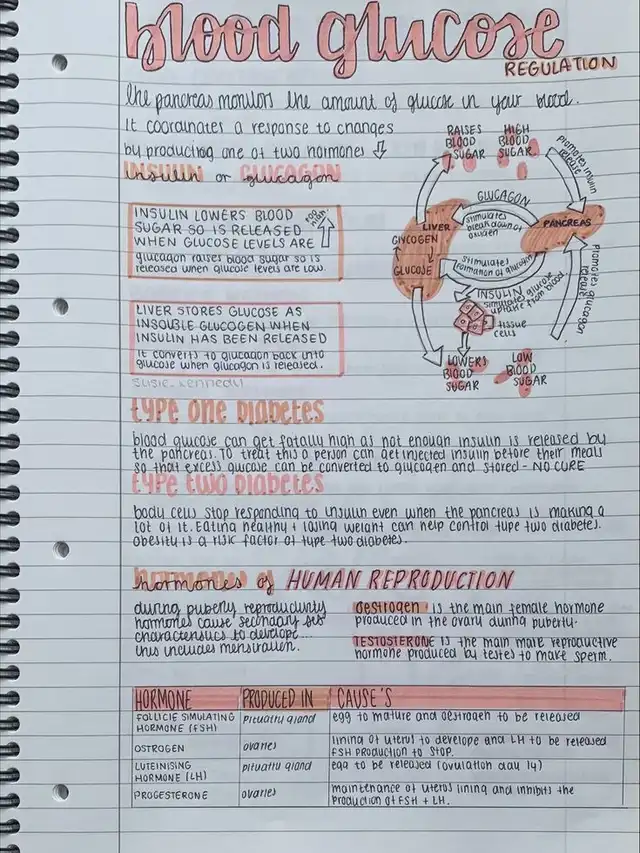 blood glucose
REGULATION
the pancreas monitors the amount of glucose in your blood.
It coordinates a response to changes
by producing one of two hormones
INSULIN or GLUCAGON
INSULIN LOWERS BLOOD
SUGAR SO IS RELEASED
WHEN GLUCOSE LEVELS ARE
glucagon raises blood sugar so is
released when glucose levels are low.
LIVER STORES GLUCOSE AS
INSOUBLE GLUCOGEN WHEN
INSULIN HAS BEEN RELEASED
It converts to glucagon back into
glucose when glucagon is released.
susie_kennedy
RAISES
BLOOD
SUGAR
HIGH
BLOOD
SUGAR
promotes insulin
release
GLUCAGON
stimulates
breakdown of
LIVER
GlYCOGEN
GLUCOSE
PANCREAS
stimulates
formation of
INSULIN
stimulates glucose
uptake from blood
tissue
cells
promotes glucagon
release
LOWERS
BLOOD
SUGAR
LOW
BLOOD
SUGAR
type one diabetes
blood glucose can get fatally high as not enough insulin is released by
the pancreas. TO treat this a person can get injected insulin before their meals
so that excess glucose can be converted to glycogen and stored - NO CURE
type two diabetes
body cells stop responding to insulin even when the pancreas is making a
lot of it. Eating healthy + losing weight can help control type two diabetes.
obesity is a risk factor of type two diabetes.
hormones of HUMAN REPRODUCTION
during puberty reproductivity
hormones cause secondary sex
characteristics to develop...
this includes menstruation.
oestrogen is the main female hormone
produced in the ovary during puberty.
TESTOSTERONE is the main male reproductive
hormone produced by testes to make sperm.
HORMONE PRODUCED IN CAUSE'S
FOLLICIE SIMULATING
HORMONE (FSH)
pituatry gland
egg to mature and oestrogen to be released
OSTROGEN
ovaries
lining of uterus to develope and LH to be released
FSH PRODUCTION TO STOP.
LUTEINISING
HORMONE (LH)
pituatry gland
egg to be released (ovulation day 14)
PROGESTERONE
ovaries
maintenance of uterus lining and inhibits the
production of FSH + LH.